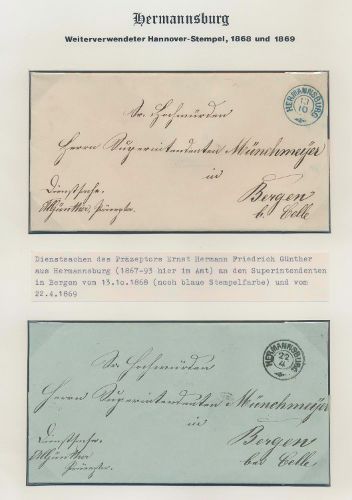 Hermannsburg
Weiterverwendeter Hannover-Stempel, 1868 und 1869
HERMANNSBURG
13
10
Sr. Hochwürden
Herrn Superintendenten Münchmeyer
in
Dienstsache.
Bergen
Günther, Präzeptor.
b. Celle
Dienstsachen des Präzeptors Ernst Hermann Friedrich Günther
aus Hermannsburg (1867-93 hier im Amt) an den Superintendenten
in Bergen vom 13.10.1868 (noch blaue Stempelfarbe) und vom
22.4.1869
HERMANNSBURG
22
4
Sr. Hochwürden
Herrn Superintendenten Münchmeyer
in
Dienstsache.
Bergen
Günther
bei Celle.